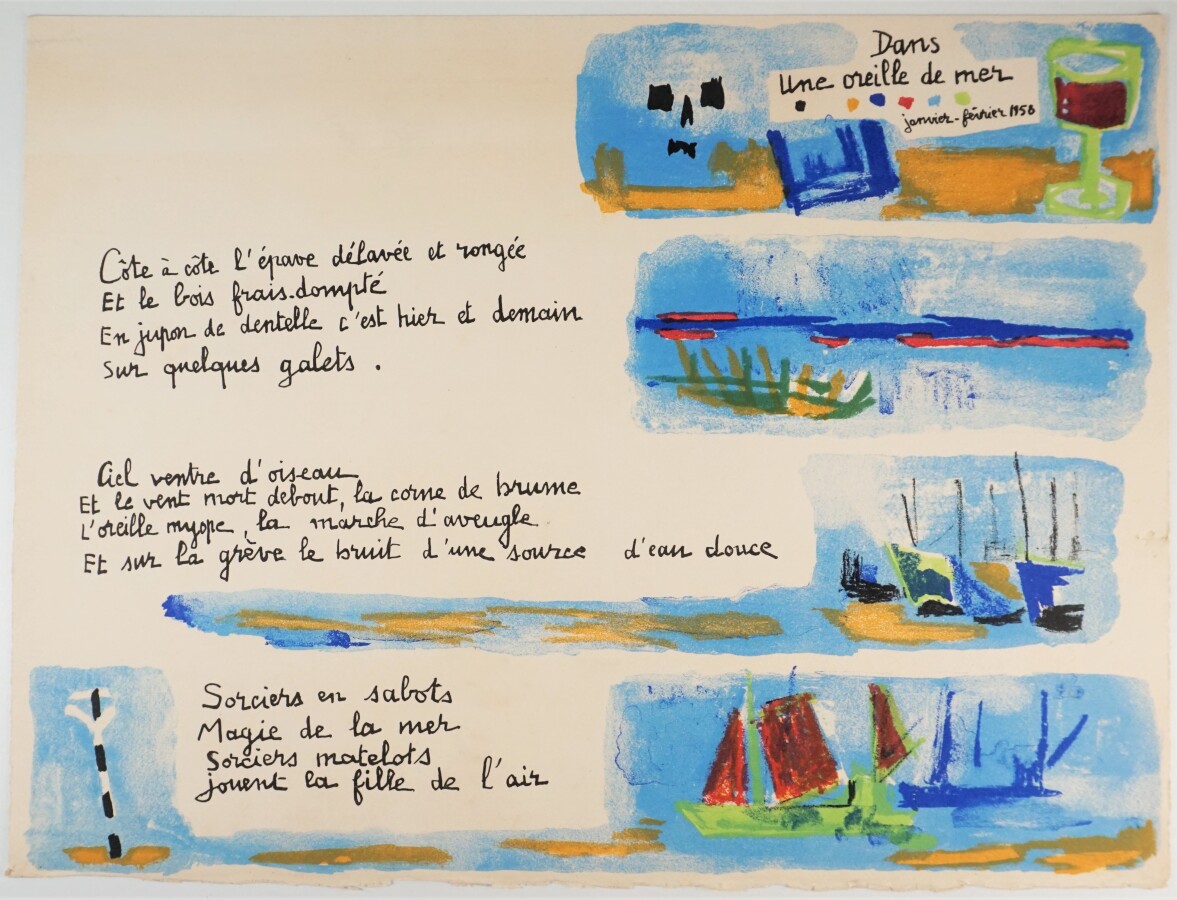 Dans
Une oreille de mer
janvier-février 1958
Côte à côte l'épave délavée et rongée
Et le bois frais.dompté
En jupon de dentelle c'est hier et demain
Sur quelques galets .
Ciel ventre d'oiseau
Et le vent mort debout, la corne de brume
L'oreille myope, la marche d'aveugle
Et sur la grève le bruit d'une source d'eau douce
Sorciers en sabots
Magie de la mer
Sorciers matelots
jouent la fille de l'air